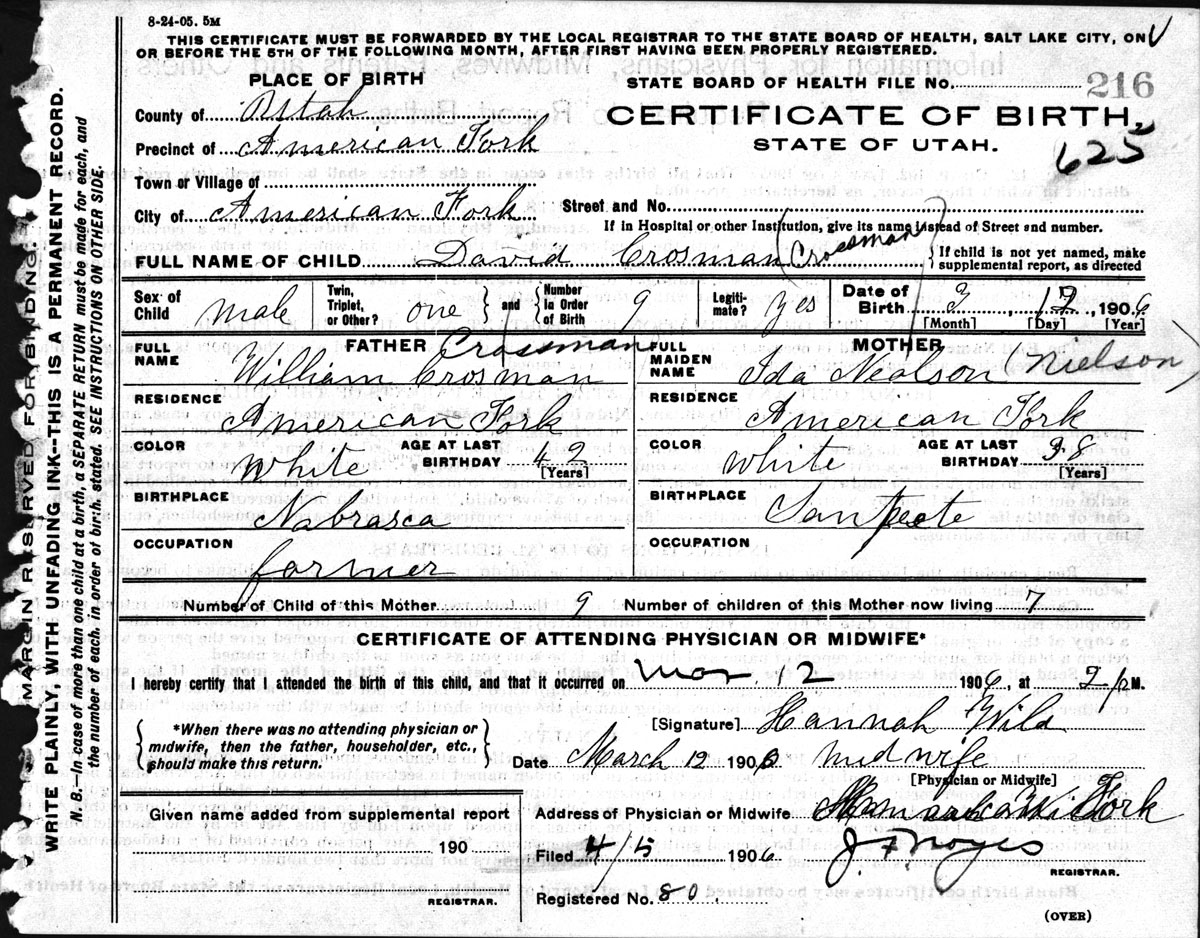 8-24-05. 5M
THIS CERTIFICATE MUST BE FORWARDED BY THE LOCAL REGISTRAR TO THE STATE BOARD OF HEALTH, SALT LAKE CITY, ON
OR BEFORE THE 5TH OF THE FOLLOWING MONTH, AFTER FIRST HAVING BEEN PROPERLY REGISTERED.
MARGIN RESERVED FOR BINDING.
WRITE PLAINLY, WITH UNFADING INK--THIS IS A PERMANENT RECORD.
N. B.—In case of more than one child at a birth, a SEPARATE RETURN must be made for each, and
the number of each, in order of birth, stated. SEE INSTRUCTIONS ON OTHER SIDE.
PLACE OF BIRTH
STATE BOARD OF HEALTH FILE No. 216
County of Utah
CERTIFICATE OF BIRTH,
Precinct of American Fork
STATE OF UTAH.
625
Town or Village of
City of American Fork Street and No.
If in Hospital or other Institution, give its name instead of Street and number.
FULL NAME OF CHILD David Crosman (Crossman) If child is not yet named, make
supplemental report, as directed
Sex of Child male Twin, Triplet, or Other? one and Number in Order of Birth 9 Legitimate? yes Date of Birth 3, 12, 1906
[Month] [Day] [Year]
FATHER Crossman MOTHER
FULL NAME William Crosman FULL MAIDEN NAME Ida Nealson (Nielson)
RESIDENCE American Fork RESIDENCE American Fork
COLOR White AGE AT LAST BIRTHDAY 42 [Years] COLOR White AGE AT LAST BIRTHDAY 38 [Years]
BIRTHPLACE Nabrasca BIRTHPLACE Sanpeete
OCCUPATION farmer OCCUPATION
Number of Child of this Mother 9 Number of children of this Mother now living 7
CERTIFICATE OF ATTENDING PHYSICIAN OR MIDWIFE*
I hereby certify that I attended the birth of this child, and that it occurred on Mar, 12 1906, at M.
*When there was no attending physician or
midwife, then the father, householder, etc.,
should make this return.
[Signature] Hannah Wild
Date March 12 1906 midwife
[Physician or Midwife]
Given name added from supplemental report
Address of Physician or Midwife Fork
190
Filed 4/5 1906 J. F. Noyes
REGISTRAR.
REGISTRAR.
Registered No. 80.
(OVER)